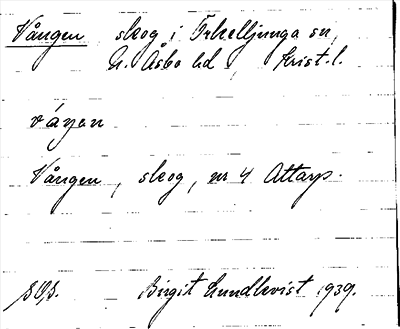 Vången skog i Örkelljunga sn,
N. Åsbo hd, Krist. l.
våŋen
Vången, skog, nr 4 Attarp.
Birgit Lundkvist 1939.